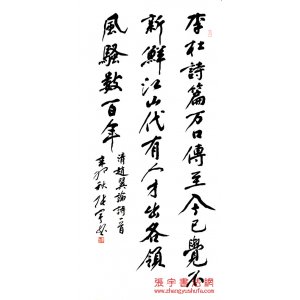 李杜詩篇万口傳至今已覺不
新鮮江山代有人才出各領
風騷数百年
清趙翼論詩一首
辛卯秋張宇書
張宇書畫網
www.zhangyushufa.com